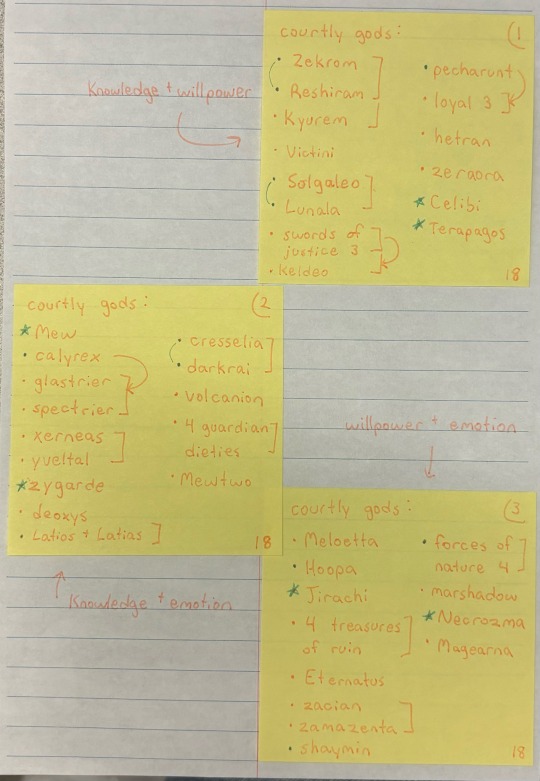 courtly gods: (1
Zekrom
Reshiram
Kyurem
Victini
Solgaleo
Lunala
swords of
justice 3
Keldeo
pecharunt
loyal 3
hetran
zeraora
Celibi
Terapagos
18
Knowledge + willpower
courtly gods: (2
Mew
calyrex
glastrier
spectrier
xerneas
yveltal
zygarde
deoxys
Latios + Latias
cresselia
darkrai
volcanion
4 guardian
dieties
Mewtwo
18
Knowledge + emotion
willpower + emotion
courtly gods: (3
Meloetta
Hoopa
Jirachi
4 treasures
of ruin
Eternatus
zacian
zamazenta
shaymin
forces of
nature 4
marshadow
Necrozma
Magearna
18